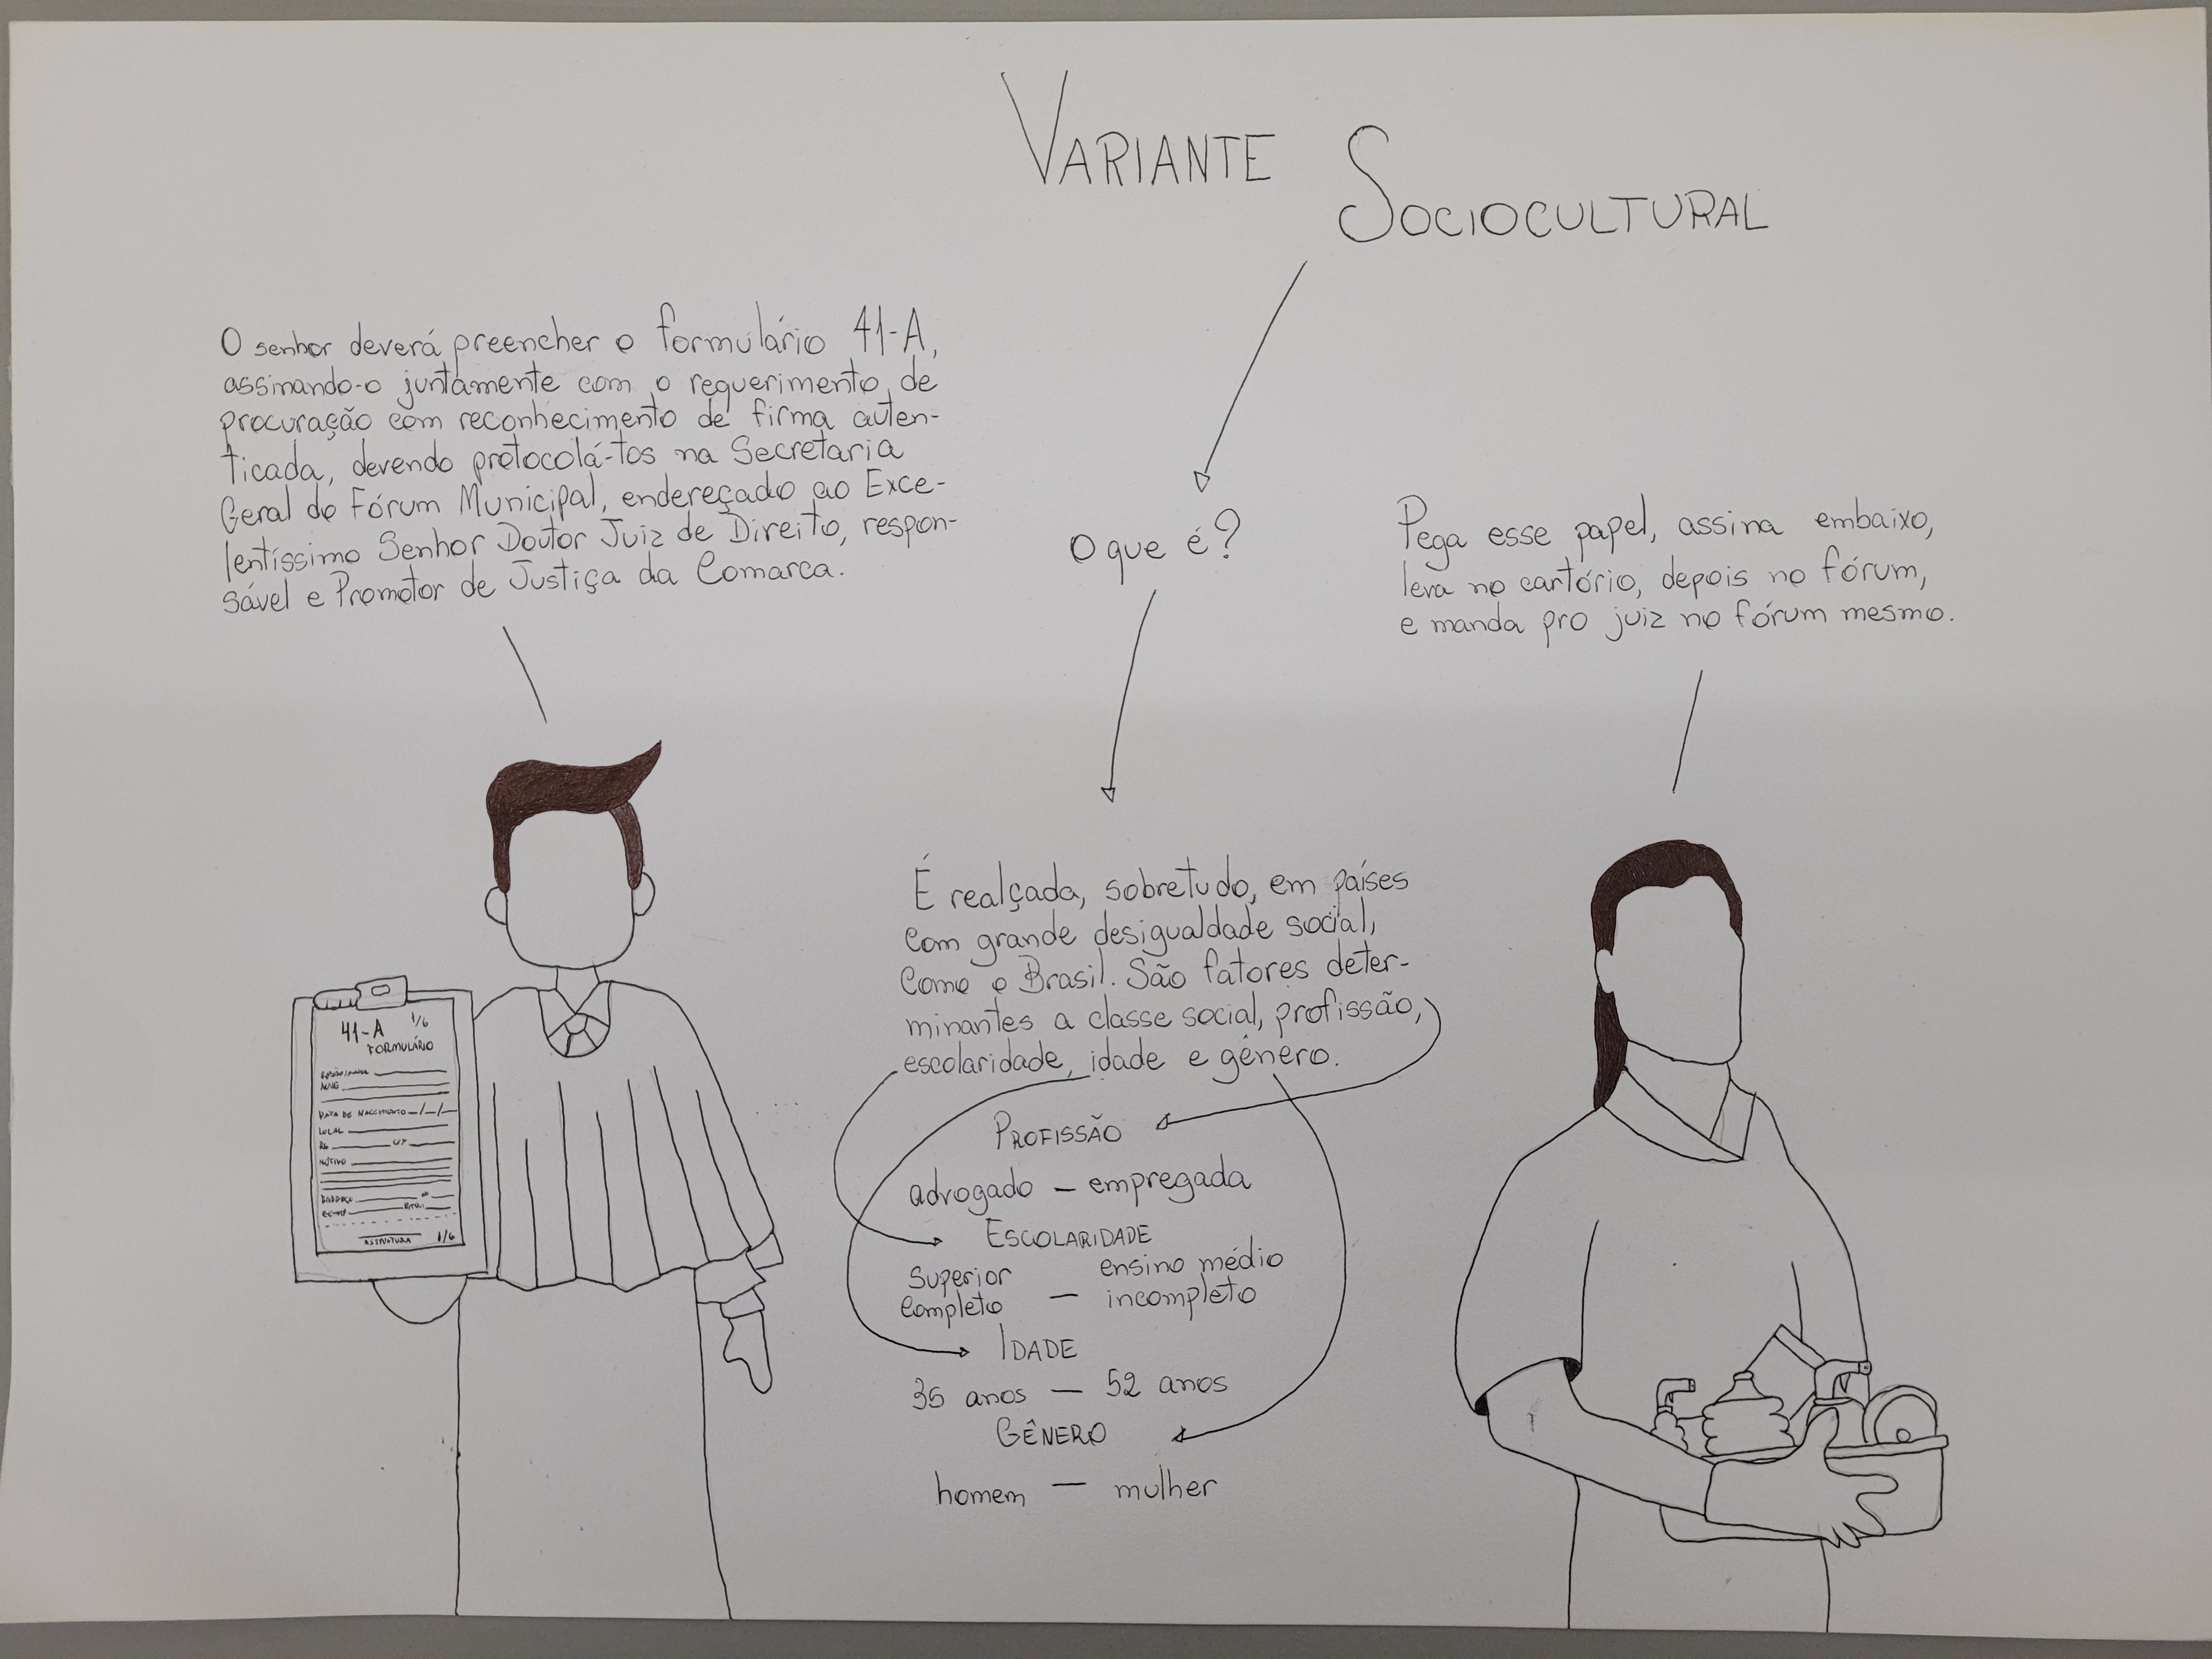 VARIANTE
SOCIOCULTURAL
O senhor deverá preencher o formulário 41-A,
assinando-o juntamente com o requerimento de
procuração com reconhecimento de firma auten-
ticada, devendo protocolá-tos na Secretaria
Geral do Fórum Municipal, endereçado ao Exce-
lentíssimo Senhor Doutor Juiz de Direito, respon-
sável e Promotor de Justiça da Comarca.
O que é?
Pega esse papel, assina embaixo,
leva no cartório, depois no fórum,
e manda pro juiz no fórum mesmo.
É realçada, sobretudo, em países
com grande desigualdade social,
como o Brasil. São fatores deter-
minantes a classe social, profissão,
escolaridade, idade e gênero.
PROFISSÃO
advogado — empregada
ESCOLARIDADE
superior — ensino médio
completo incompleto
IDADE
35 anos — 52 anos
GÊNERO
homem — mulher
41-A 1/6
FORMULÁRIO
DATA DE NASCIMENTO _/_/_
LOCAL
MOTIVO
ASSINATURA 1/6